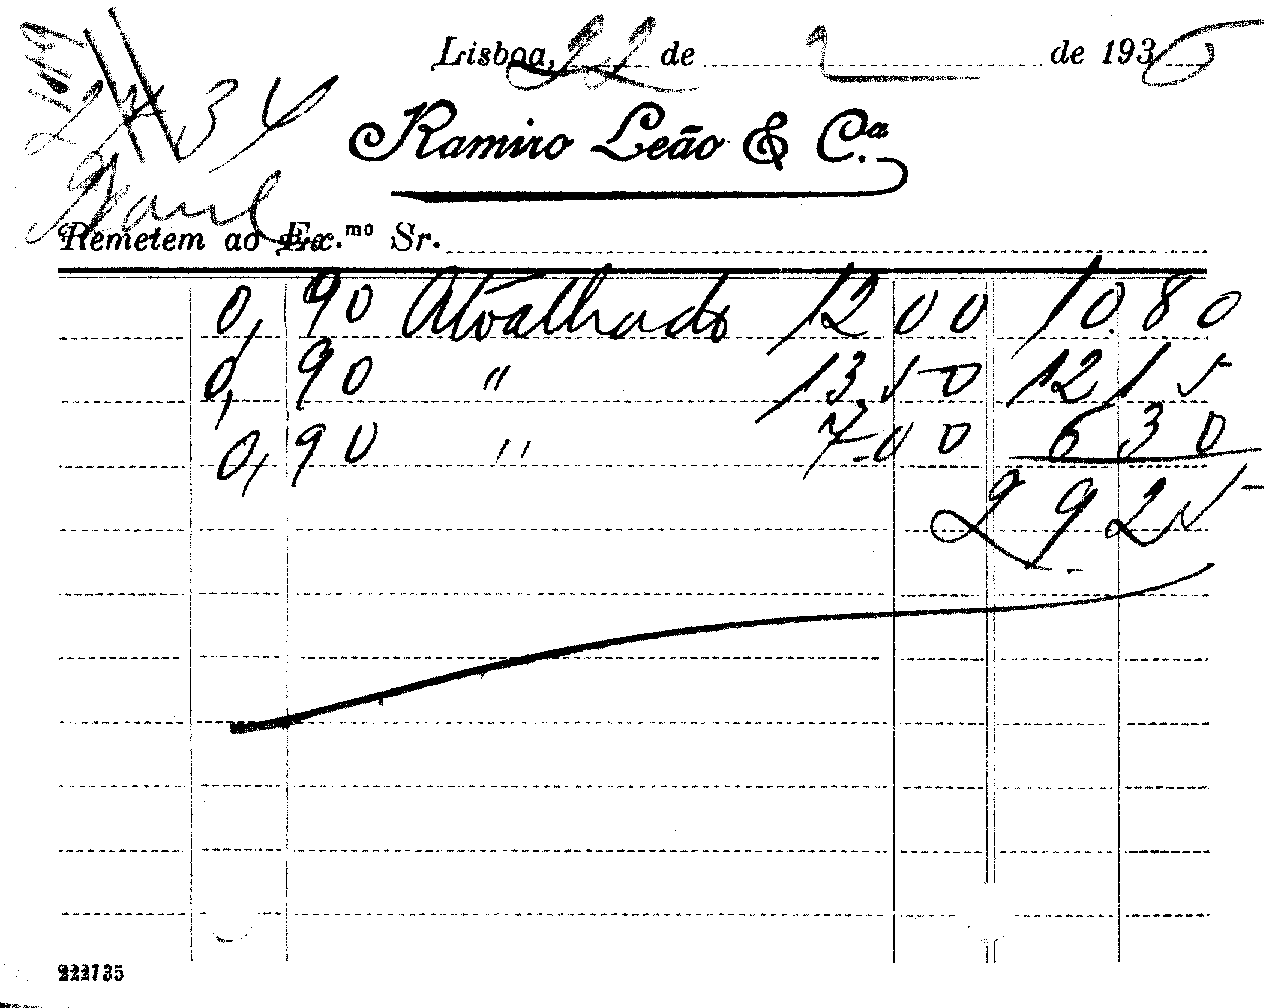 Lisboa, 22 de 2 de 1935
34
Ramiro Leão & C.ª
Remetem ao Ex.mo Sr.
0,90 Atoalhado 12 00 10 80
0,90 " 13 50 12 15
0,90 " 7 00 6 30
29 25